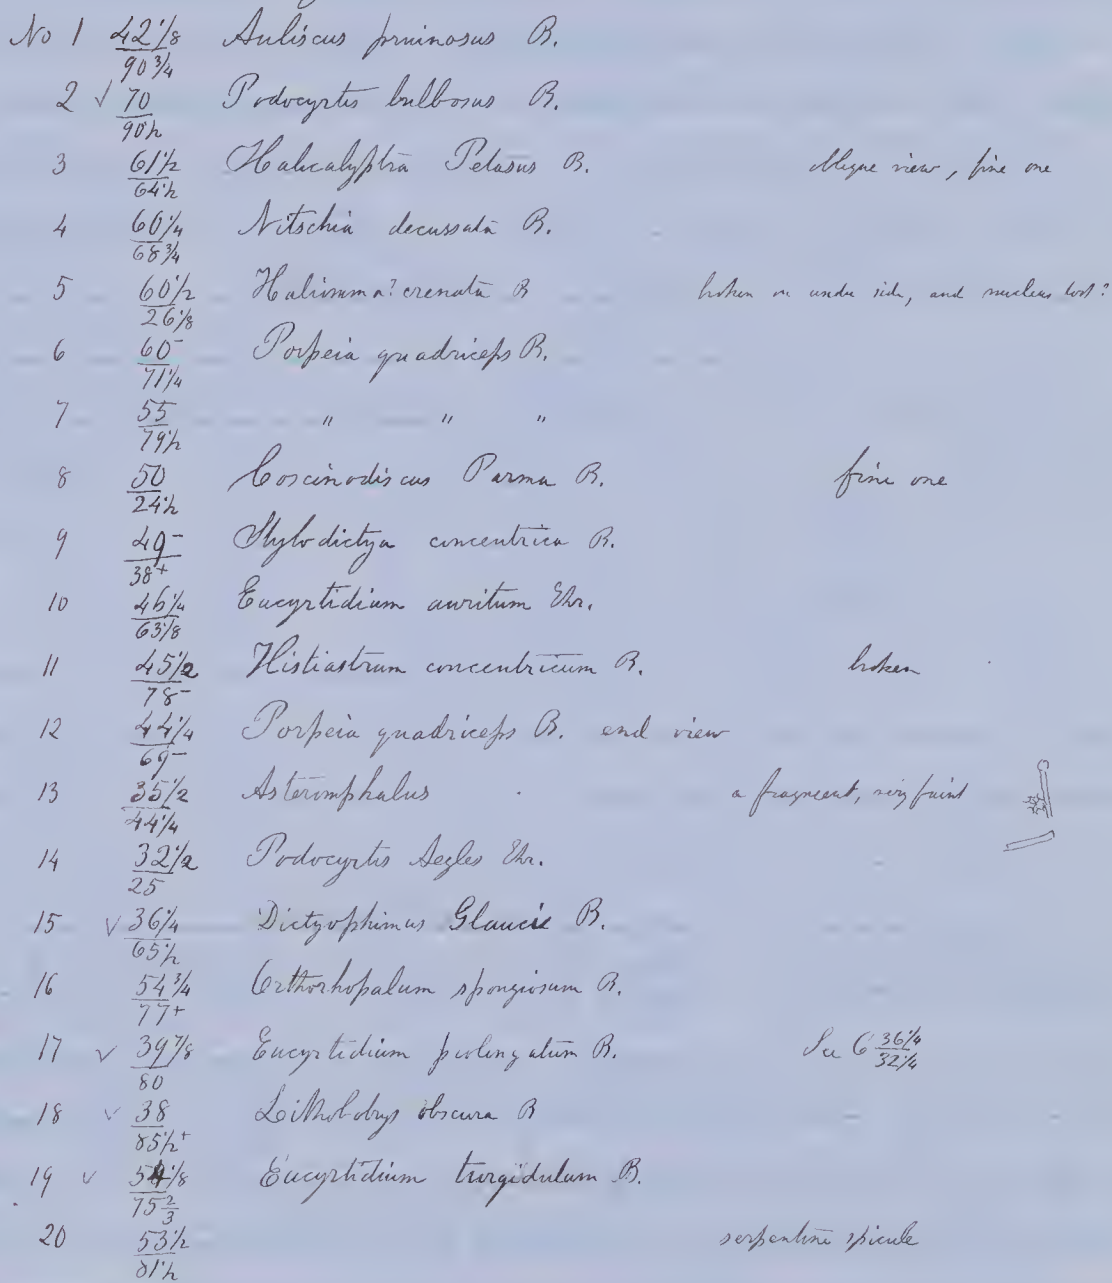 No 1 42 1/8 / 90 3/4 Auliscus pruinosus B.
2 √ 70 / 90 1/2 Podocyrtis bulbosus B.
3 61 1/2 / 64 1/2 Halicalyptra Petasus B. oblique view, fine one
4 60 1/4 / 68 3/4 Nitschia decussata B.
5 60 1/2 / 26 1/8 Haliomma? crenata B broken on under side, and nucleus lost?
6 60- / 71 1/4 Porpeia quadriceps B.
7 55 / 79 1/2 " " "
8 50 / 24 1/2 Coscinodiscus Parma B. fine one
9 49- / 38+ Stylodictya concentrica B.
10 46 1/4 / 63 1/8 Eucyrtidium auritum Ehr.
11 45 1/2 / 78- Histiastrum concentricum B. broken
12 44 1/4 / 69- Porpeia quadriceps B. end view
13 35 1/2 / 44 1/4 Asteromphalus a fragment, very faint
14 32 1/2 / 25 Podocyrtis Aegles Ehr.
15 √ 36 1/4 / 65 1/2 Dictyophimus Glaucis B.
16 54 3/4 / 77+ Orthorhopalum spongiosum B.
17 √ 39 7/8 / 80 Eucyrtidium prolongatum B. See 6 36 1/4 / 32 1/4
18 √ 38 / 85 1/2+ Lithobotrys obscura B
19 √ 54 1/8 / 75 2/3 Eucyrtidium turgidulum B.
20 53 1/2 / 81 1/2 serpentine spicule